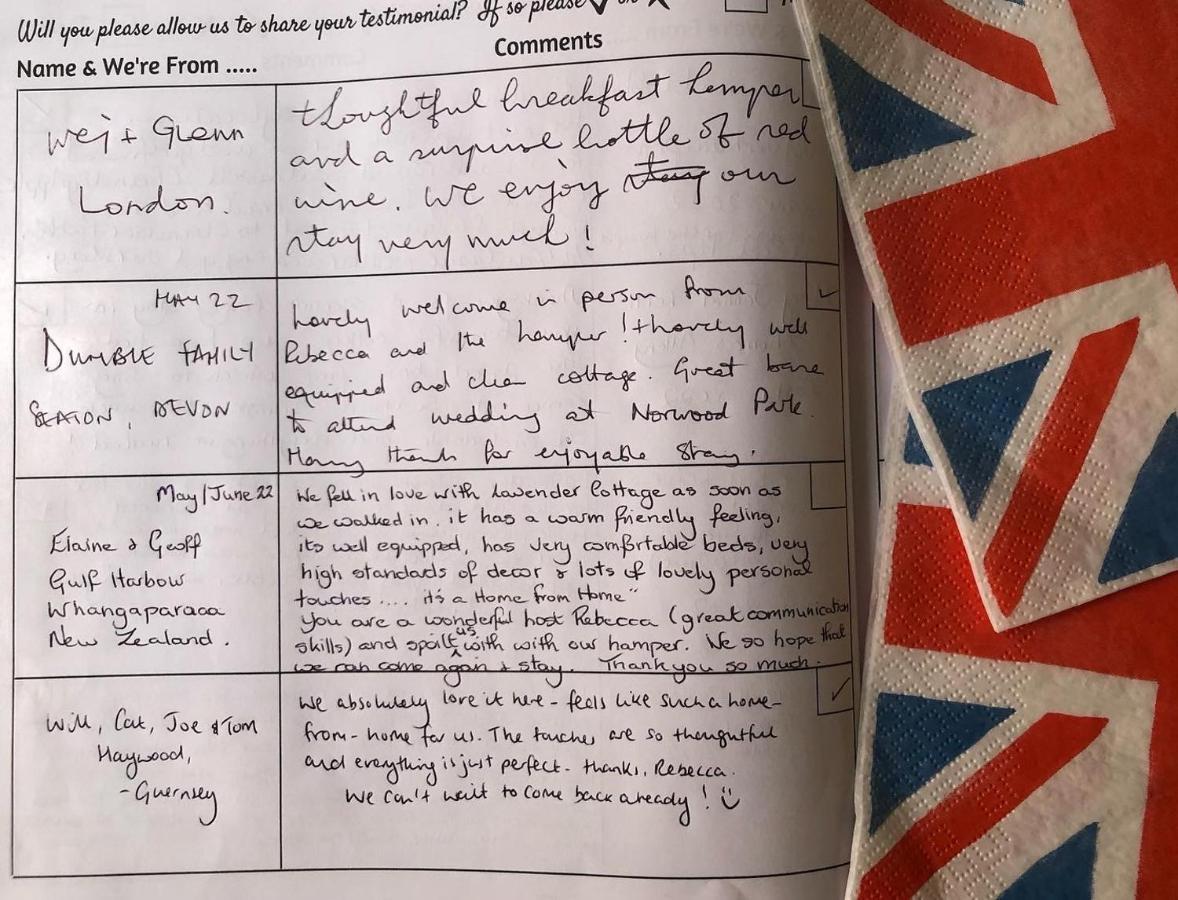 Will you please allow us to share your testimonial? If so please ✓ or X
Name & We're From ..... Comments
Wei + Glenn
London.
thoughtful breakfast hamper
and a surprise bottle of red
wine. We enjoy our
stay very much!
MAY 22
DUMBLE FAMILY
SEATON, DEVON
✓
Lovely welcome in person from
Rebecca and the hamper! + hovely well
equipped and clean cottage. Great base
to attend wedding at Norwood Park.
Many thanks for enjoyable stay.
May/June 22
Elaine & Geoff
Gulf Harbour
Whangaparaoa
New Zealand.
We fell in love with Lavender Cottage as soon as
we walked in. it has a warm friendly feeling,
its well equipped, has very comfortable beds, very
high standads of decor & lots of lovely personal
touches .... it's a Home from Home"
You are a wonderful host Rebecca (great communication
skills) and spoilt us with with our hamper. We so hope that
we can come again & stay. Thank you so much.
Will, Cat, Joe & Tom
Haywood,
- Guernsey
✓
We absolutely love it here - feels like such a home-
from-home for us. The touches are so thoughtful
and everything is just perfect - thanks, Rebecca.
We can't wait to come back already! :)